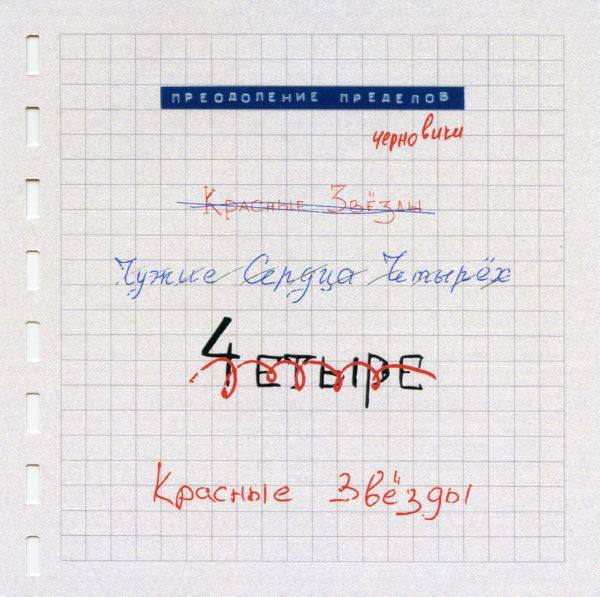 ПРЕОДОЛЕНИЕ ПРЕДЕЛОВ
черновики
Красные Звёзды
Чужие Сердца Четырёх
4ЕТЫРЕ
Красные Звёзды